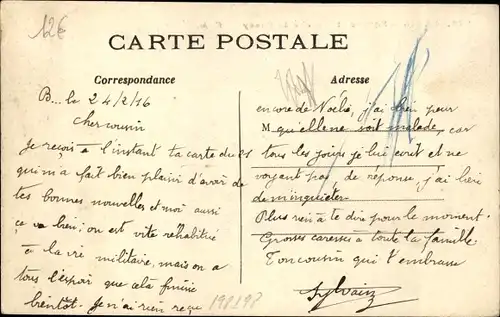 12€
CARTE POSTALE
Correspondance
Adresse
B... le 24/2/16
Cher cousin
Je reçois à l'instant ta carte du 21
qui m'a fait bien plaisir d'avoir de
tes bonnes nouelles et moi aussi
ça va bien; on est vite réhabitué
à la vie militaire, mais on a
tous l'espoir que celà finisse
bientôt. Je n'ai rien reçu
198198
encore de Noélie, j'ai bien peur
M qu'elle ne soit malade, car
tous les jours je lui écrit et ne
voyant pas de réponse, j'ai lieu
de m'inquiéter.
Plus rien à te dire pour le moment.
Grosses caresses à toute la famille
Ton cousin qui t'embrasse
Sylvain